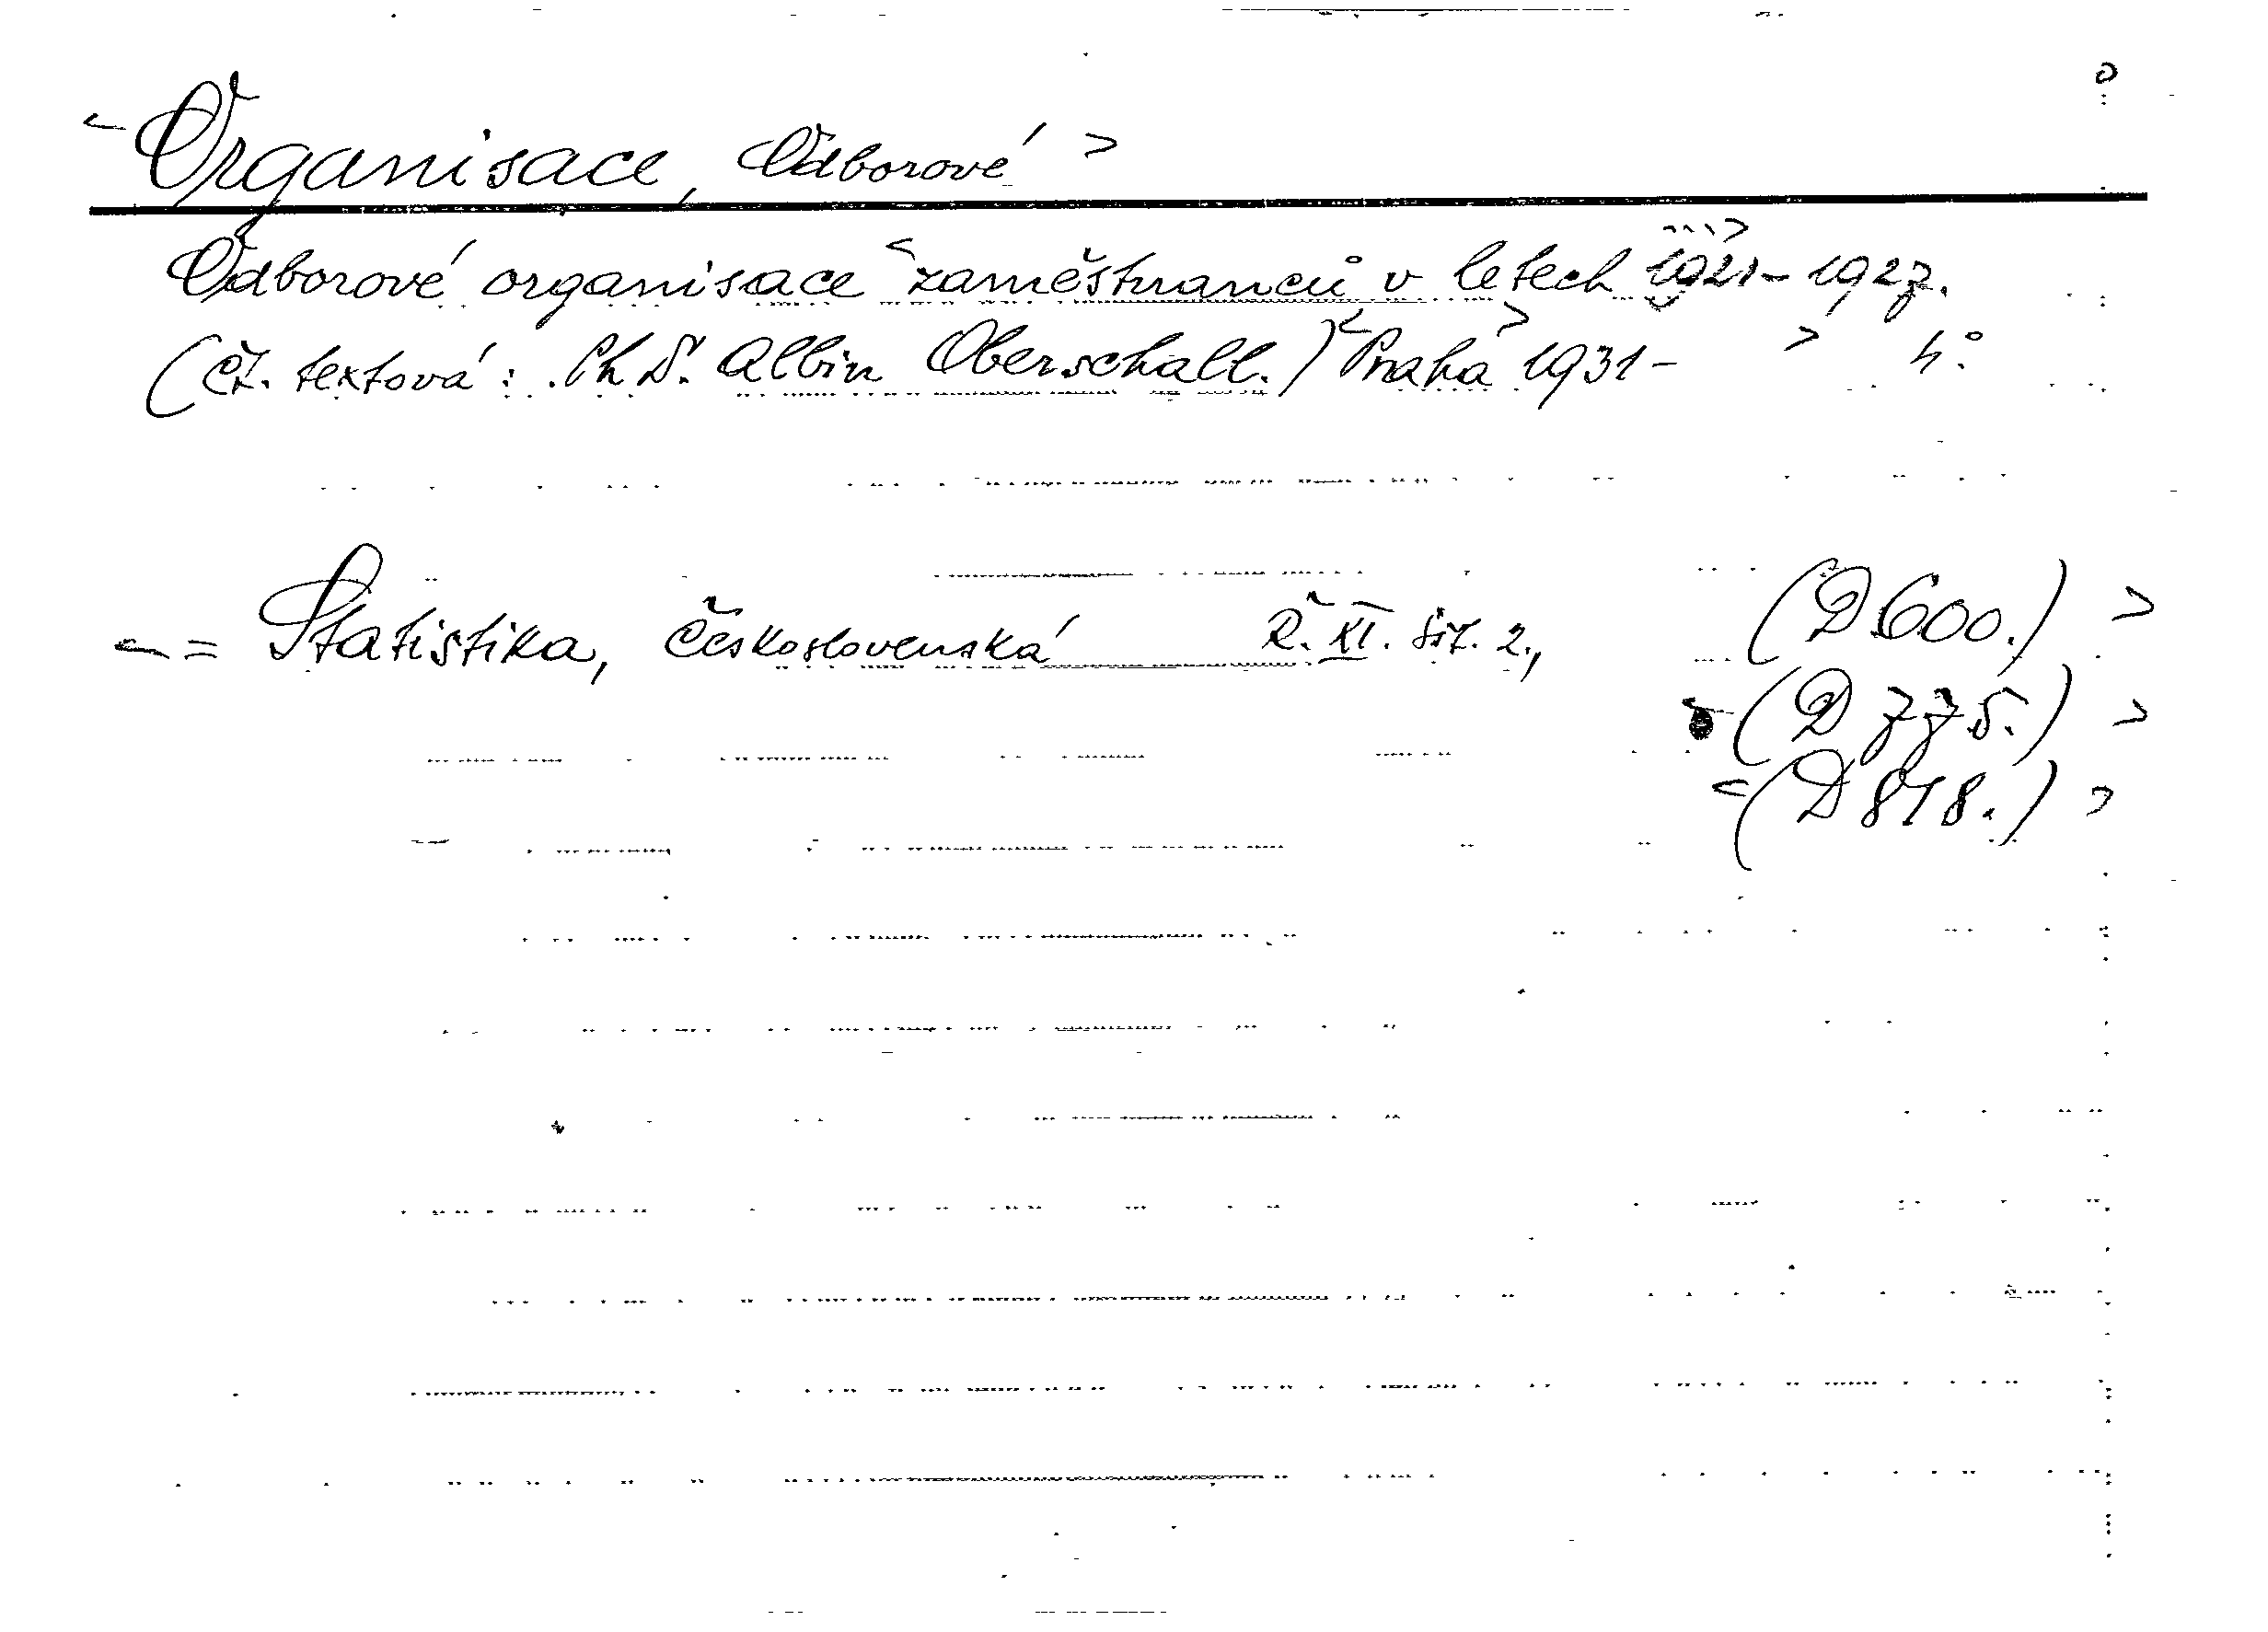 Organisace, Odborové
Odborové organisace zaměstnanců v letech 1921-1927.
(Čt. textová: Ph Dr. Albin Oberschall.) Praha 1931- 4°
= Statistika, Československá Ř. XI. siř. 2., (D 600.)
(D 775.)
(D 818.)